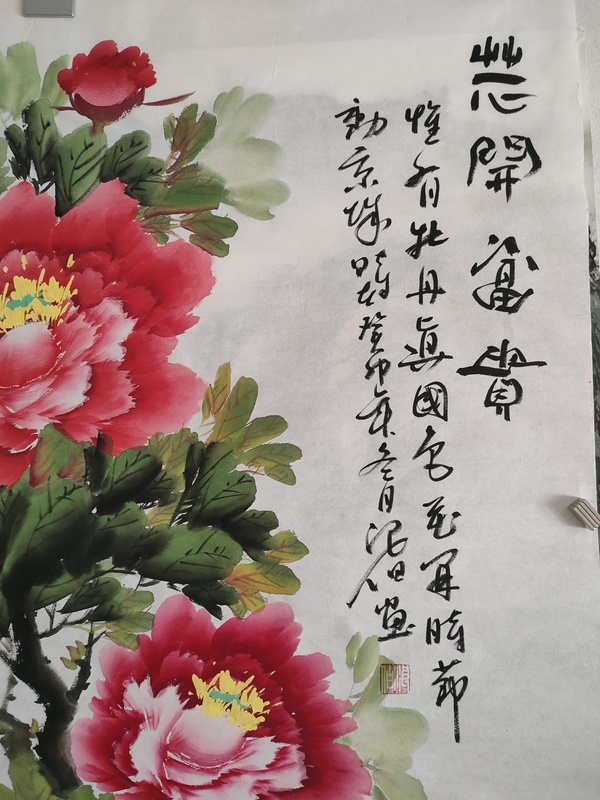 花開富貴
惟有牡丹真國色花開時節
動京城時在癸卯年冬月漢伯畫